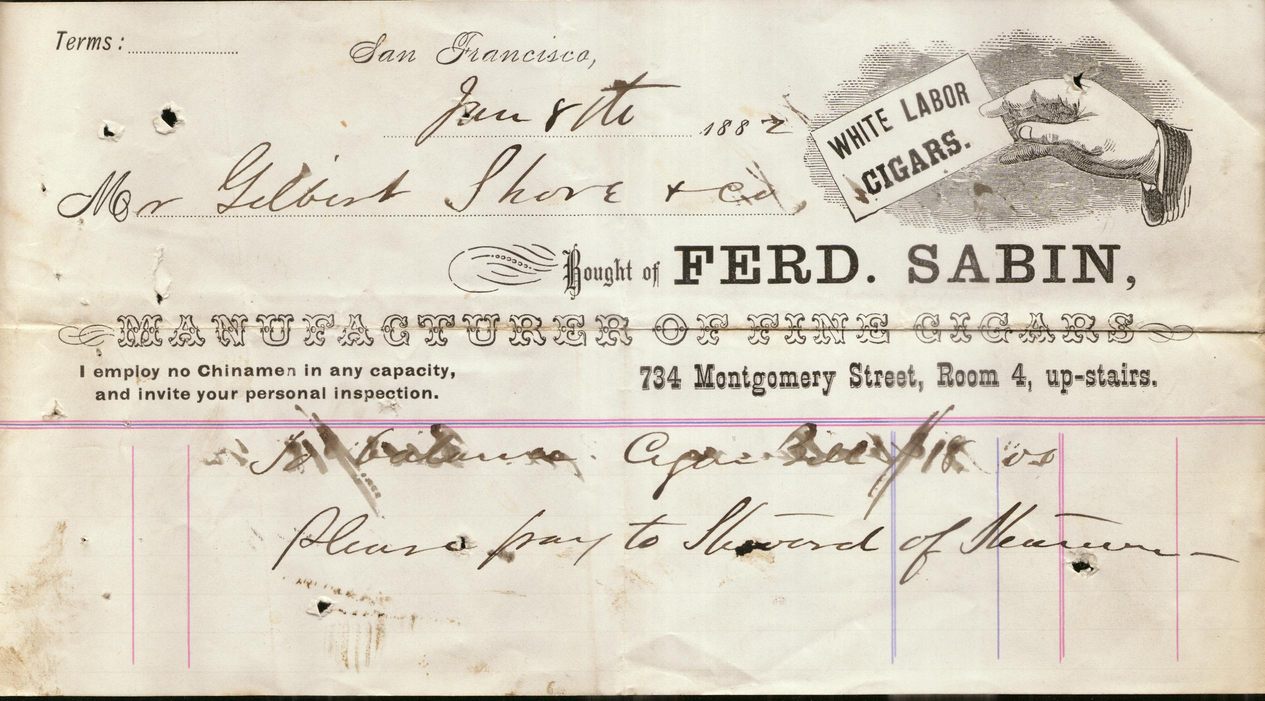 Terms:
San Francisco,
Jan 8th 1882
Mr Gilbert Shore & Co
WHITE LABOR
CIGARS.
Bought of FERD. SABIN,
MANUFACTURER OF FINE CIGARS
I employ no Chinamen in any capacity,
and invite your personal inspection.
734 Montgomery Street, Room 4, up-stairs.
To balance Cigar Bill $18 00
Please pay to Steward of Steamer